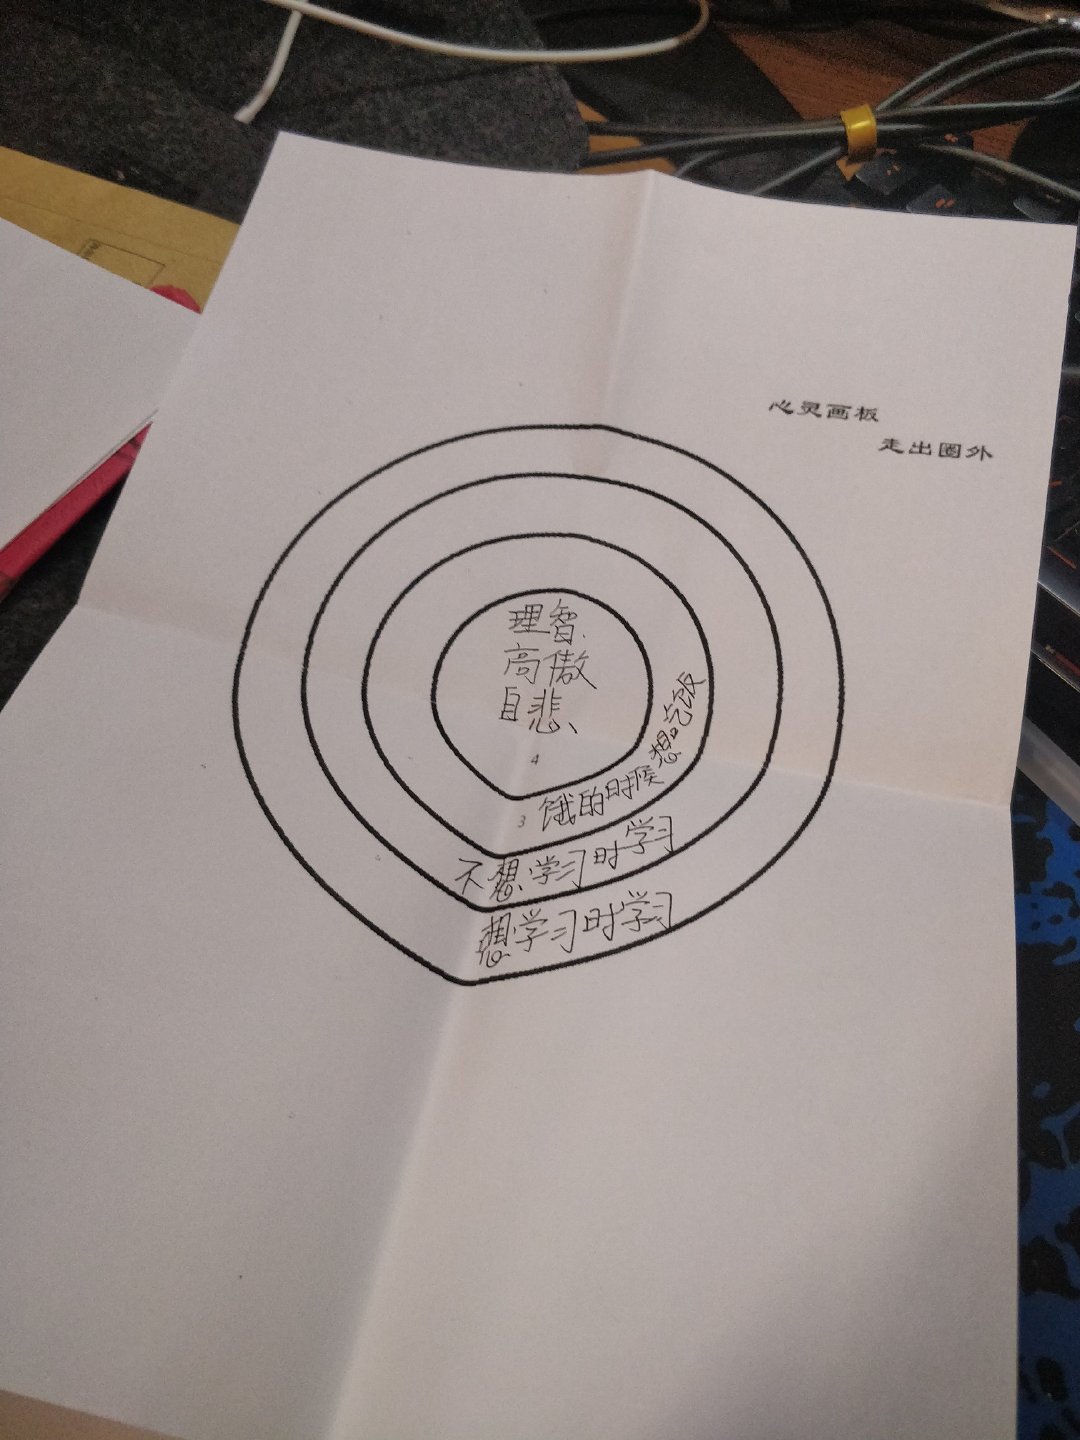 心灵画板
走出圈外
理智、
高傲
自悲、
4
3
饿的时候想吃饭
不想学习时学习
想学习时学习